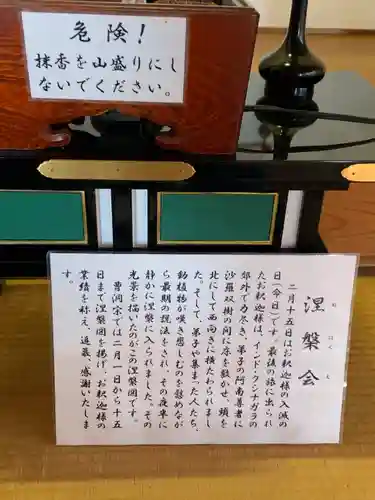 危険！
抹香を山盛りにし
ないでください。
涅槃会
ねはんえ
二月十五日はお釈迦様の入滅の
日（今日）です。最後の旅に出られ
たお釈迦様は、インド・クシナガラの
郊外で力尽き、弟子の阿南尊者に
沙羅双樹の間に床を敷かせ、頭を
北にして西向きに横たわられまし
た。そして、弟子や集まった人たち、
動植物が嘆き悲しむのを慰めなが
ら最期の説法をされ、その夜半に
静かに涅槃に入られました。その
光景を描いたのがこの涅槃図です。
曹洞宗では二月一日から十五
日まで涅槃図を掲げ、お釈迦様の
業績を称え、追慕、感謝いたしま
す。